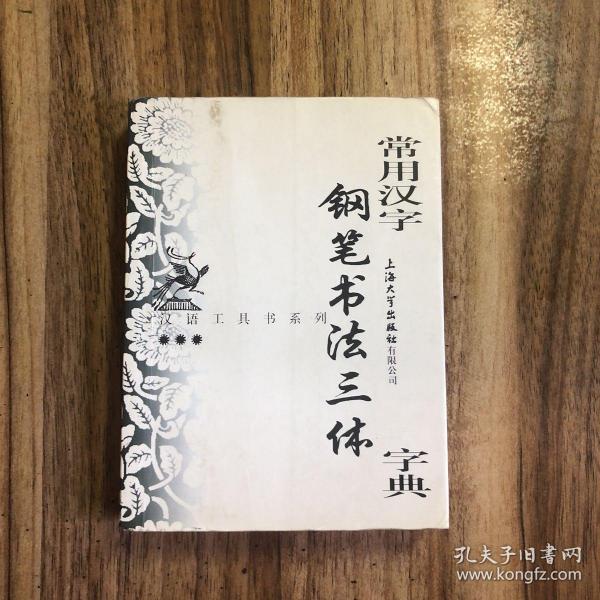 常用汉字
钢笔书法三体
字典
上海大学出版社有限公司
汉语工具书系列
孔夫子旧书网
www.kongfz.com